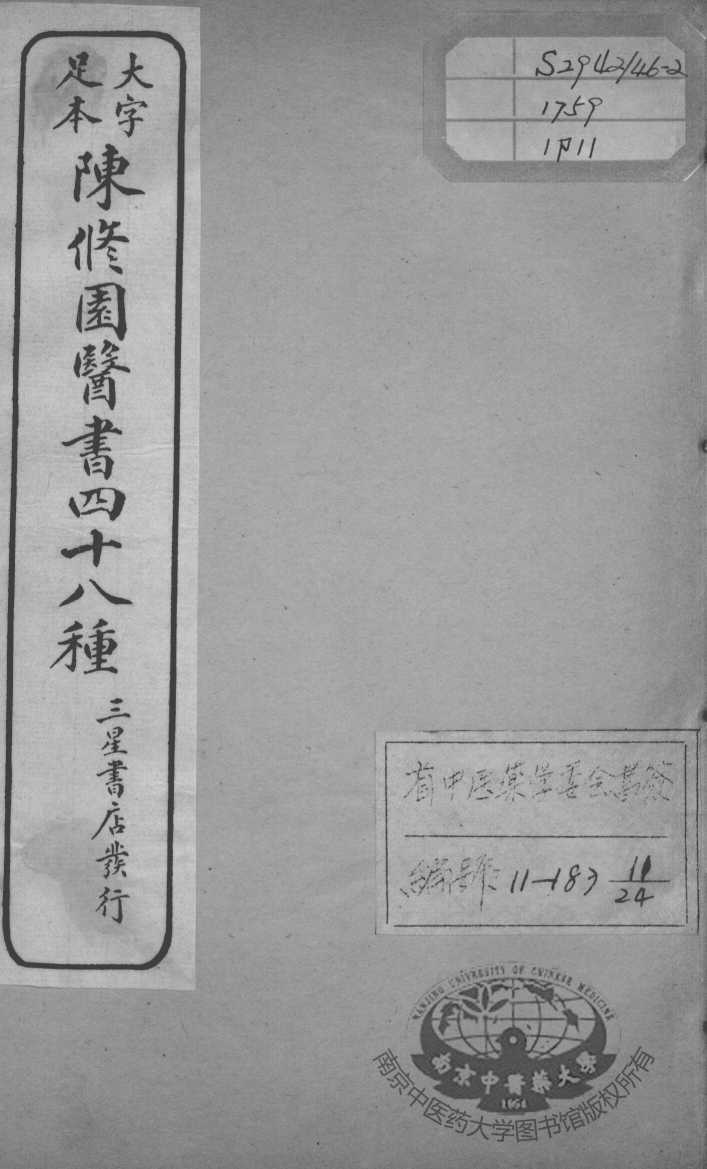 大字
足本
陳修園醫書四十八種
三星書店發行
S2942/46-2
1759
1P11
省中医葯学委会
編號: 11-183 11/24
NANJING UNIVERSITY OF CHINESE MEDICINE
南京中醫藥大學
1954
南京中医药大学图书馆版权所有